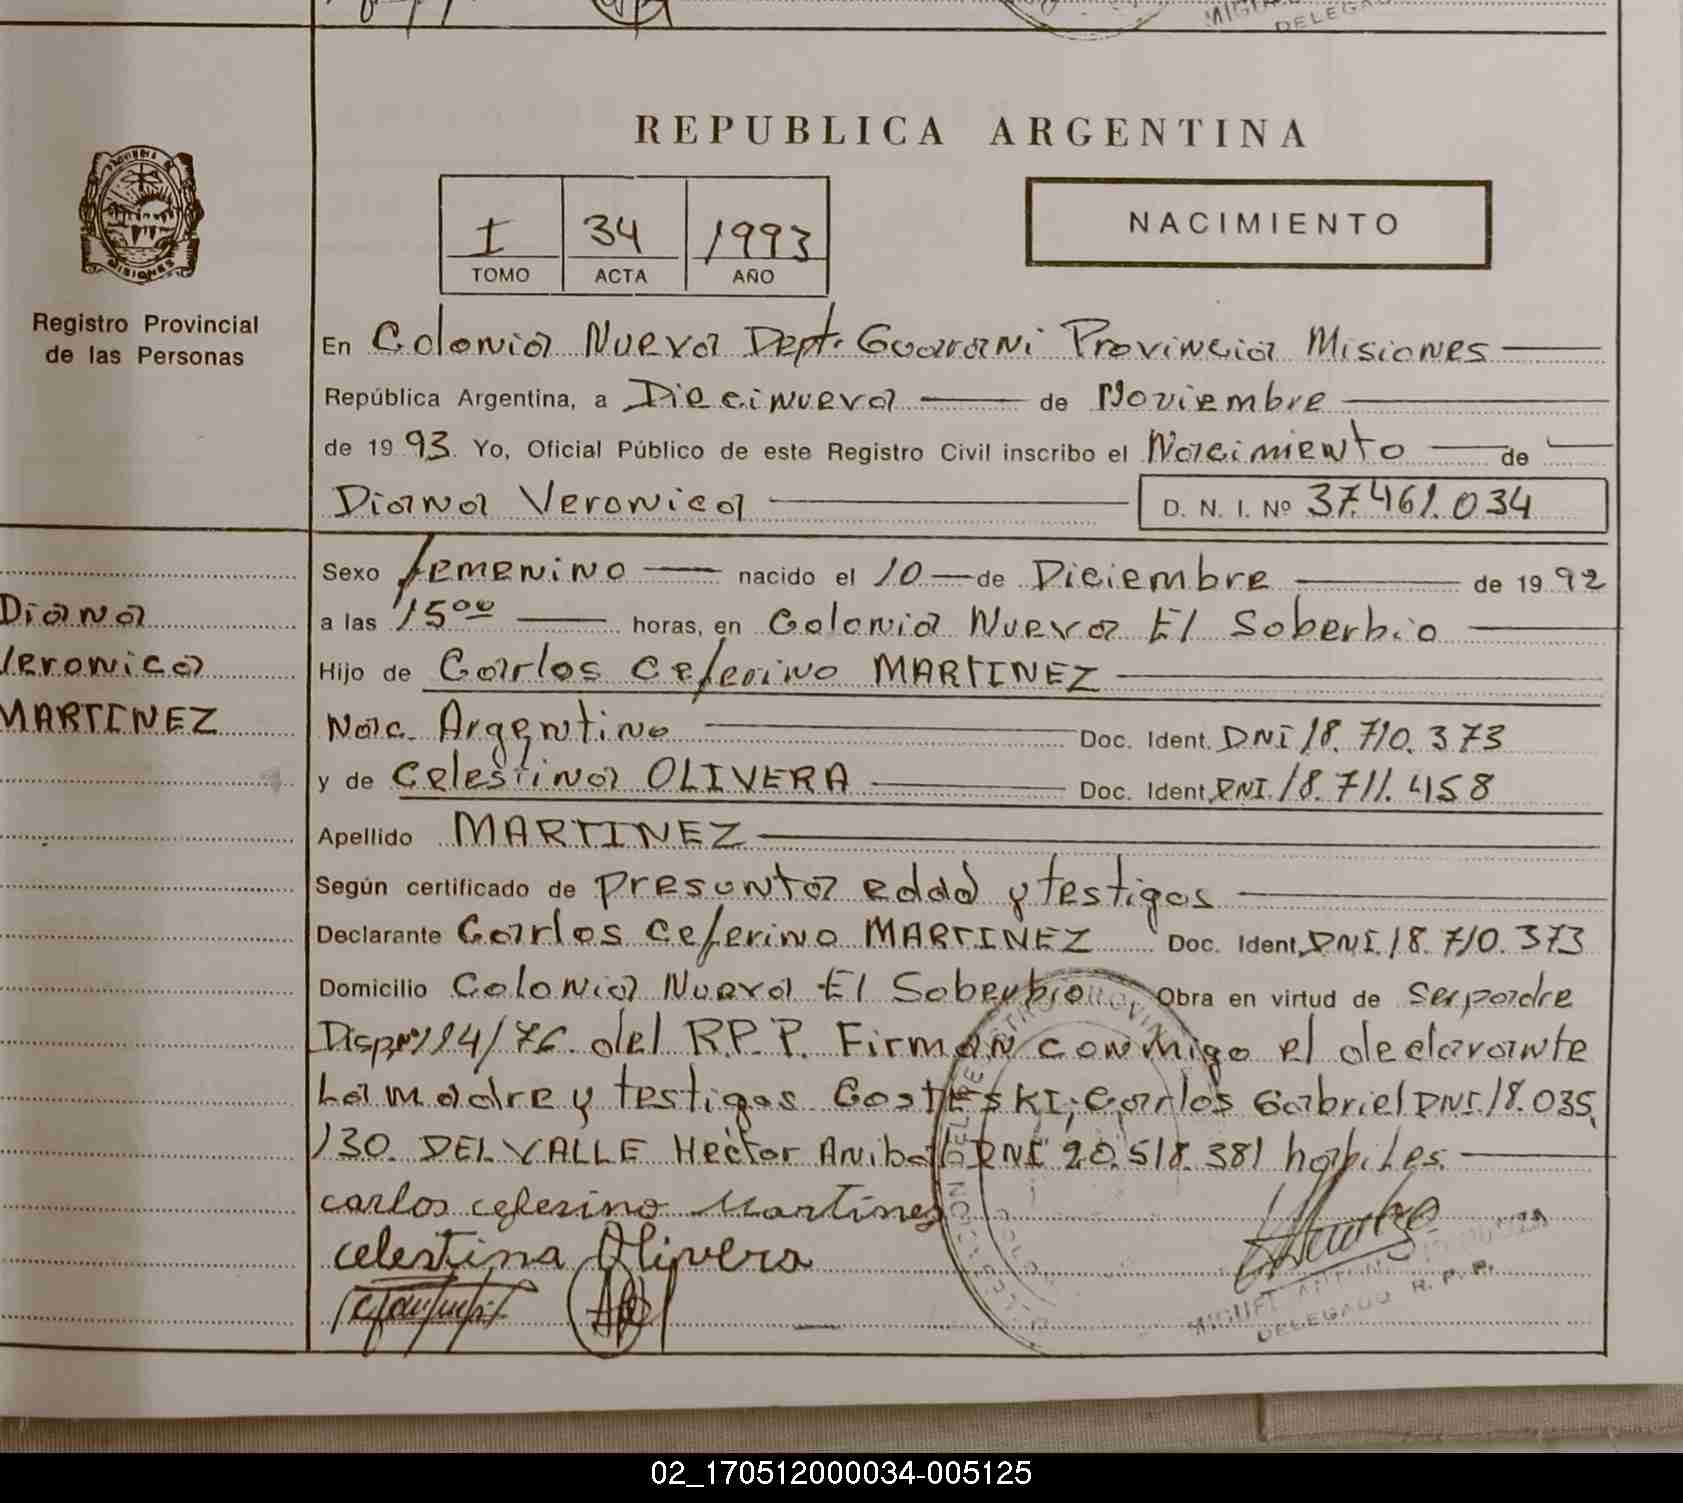 DELEGADO
REPUBLICA ARGENTINA
NACIMIENTO
I 34 1993
TOMO ACTA AÑO
PROVINCIA DE
MISIONES
Registro Provincial
de las Personas
En Colonia Nueva Dept. Guarani Provincia Misiones
República Argentina, a Diecinueva de Noviembre
de 1993 Yo, Oficial Público de este Registro Civil inscribo el Nacimiento de
Diana Veronica D. N. I. Nº 37.461.034
Sexo femenino nacido el 10 de Diciembre de 1992
a las 15 00 horas, en Colonia Nueva El Soberbio
Hijo de Carlos Ceferino MARTINEZ
Nac. Argentino Doc. Ident. DNI 18.710.373
y de Celestina OLIVERA Doc. Ident. DNI. 18.711.458
Apellido MARTINEZ
Según certificado de presunta edad y testigos
Declarante Carlos Ceferino MARTINEZ Doc. Ident. DNI. 18.710.373
Domicilio Colonia Nueva El Soberbio Obra en virtud de ser padre
Disp. Nº 114/76 del R.P.P. Firman conmigo el declarante
La madre y testigos COSTESKI, Carlos Gabriel DNI. 18.035
130. DEL VALLE Hector Anibal DNI 20.518.381 habiles.
carlos ceferino Martinez
celestina Olivera
Diana
Veronica
MARTINEZ
MIGUEL ANTONIO
DELEGADO R. P. P.
02_170512000034-005125